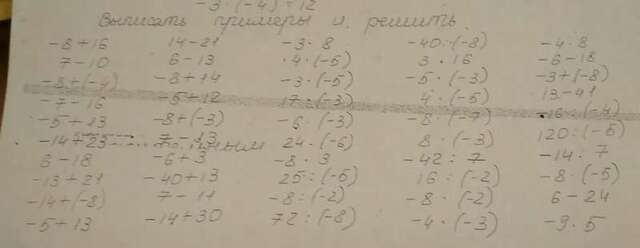 -3·(-4)=12
Выписать примеры и решить.
-8+16 14-21 -3·8 -40:(-8) -4·8
7-10 6-13 ·4·(-5) 3·16 -6-18
-8+(-4) -8+14 -3·(-5) -5·(-3) -3+(-8)
-7-16 -5+12 17·(-3) 4·(-5) 13-41
-5+13 -8+(-3) -6·(-3) -8·(-7) -16:(-4)
-14+23 7-13 24:(-6) 8·(-3) 120:(-5)
6-18 -6+3 -8·3 -42:7 -14:7
-13+21 -40+13 25:(-5) 16:(-2) -8·(-5)
-14+(-8) 7-11 -8:(-2) -8·(-2) 6-24
-5+13 -14+30 72:(-8) -4·(-3) -9·5